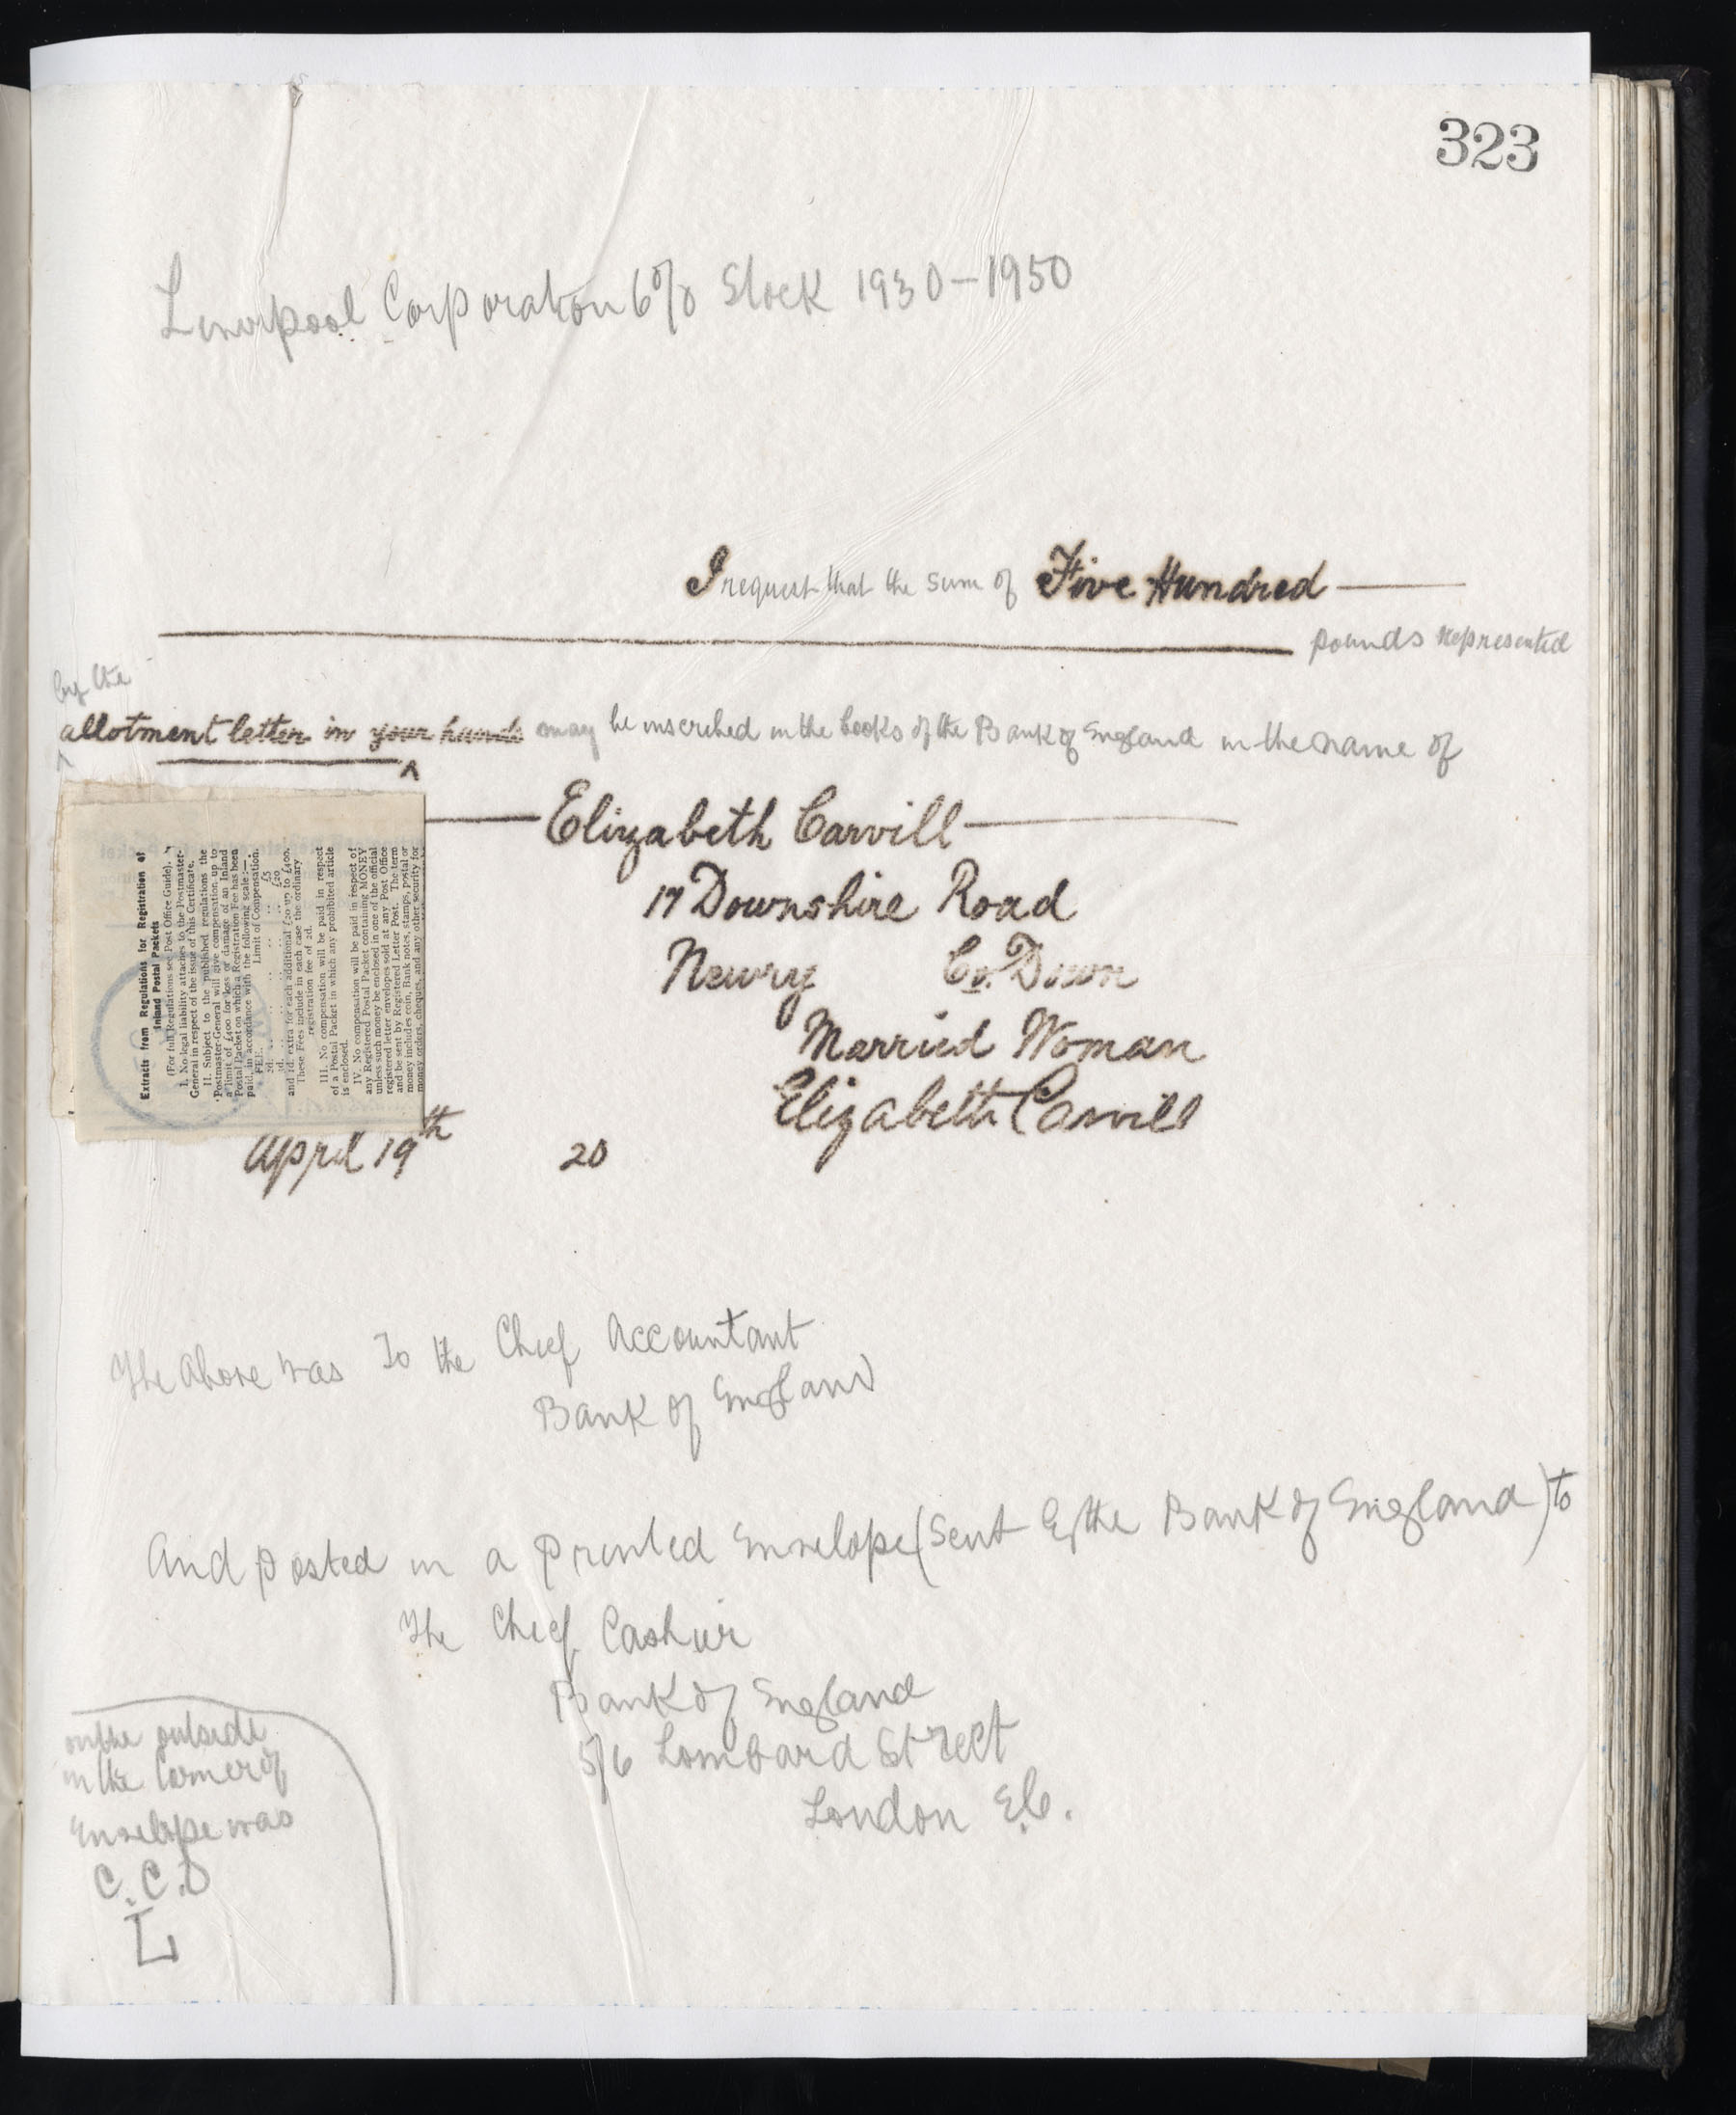 323
Liverpool Corporation 6% Stock 1930-1950
I request that the sum of Five Hundred
pounds represented
by the
allotment letter in your hands may be inscribed in the books of the Bank of England in the name of
Elizabeth Carvill
17 Downshire Road
Newry Co. Down
Married Woman
Elizabeth Carvill
April 19th 20
Extracts from Regulations for Registration of
Inland Postal Packets
(For full Regulations see Post Office Guide).
I. No legal liability attaches to the Postmaster-
General in respect of the issue of this Certificate.
II. Subject to the published regulations the
Postmaster-General will give compensation, up to
a limit of £400 for loss or damage of an Inland
Postal Packet on which a Registration Fee has been
paid, in accordance with the following scale:—
FEE. Limit of Compensation.
2d. .. .. .. £5
3d. .. .. .. £20
and 1d. extra for each additional £20 up to £400.
These Fees include in each case the ordinary
registration fee of 2d.
III. No compensation will be paid in respect
of a Postal Packet in which any prohibited article
is enclosed.
IV. No compensation will be paid in respect of
any Registered Postal Packet containing MONEY
unless such money be enclosed in one of the official
registered letter envelopes sold at any Post Office
and be sent by Registered Letter Post. The term
money includes coin, Bank notes, stamps, postal or
money orders, cheques, and any other security for
The above was To the Chief Accountant
Bank of England
And posted in a Printed Envelope (Sent by the Bank of England) to
The Chief Cashier
Bank of England
5/6 Lombard Street
London E.C.
on the outside
in the Corner of
Envelope was
C.C.O
L